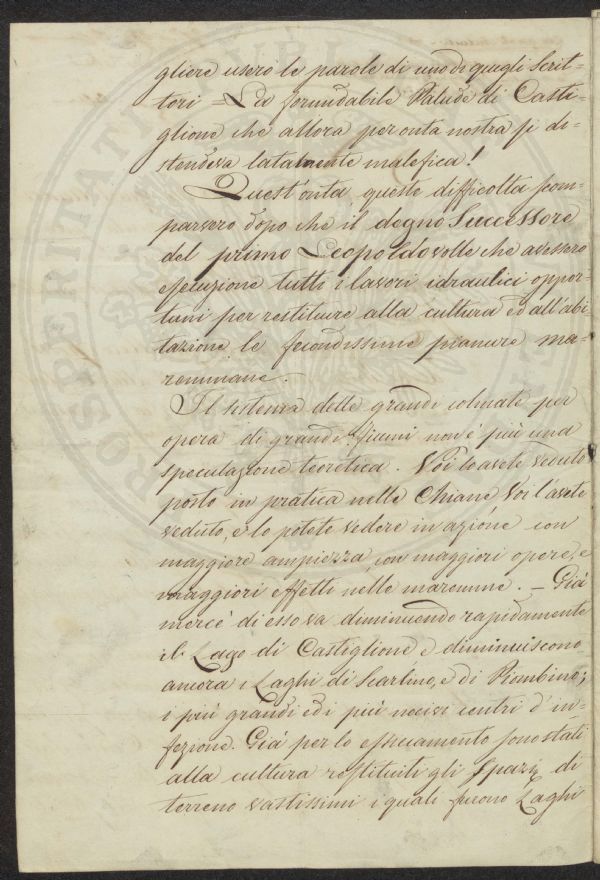 gliere userò le parole di uno di quegli Scrit-
tori = La formidabile Palude di Casti-
glione che allora per onta nostra si di-
stendeva latamente malefica!
Quest'onta, queste difficoltà scom-
parvero dopo che il degno Successore
del primo Leopoldo volle che avessero
esecuzione tutti i lavori idraulici oppor-
tuni per restituire alla cultura ed all'abi-
tazione le fecondissime pianure ma-
remmane.
Il sistema delle grandi colmate per
opera di grandi fiumi non è più una
speculazione teoretica. Voi lo avete veduto
posto in pratica nelle Chiane Voi l'avete
veduto, e lo potete vedere in azione con
maggiore ampiezza, con maggiori opere, e
maggiori effetti nelle maremme. _ Già
mercè di esso va diminuendo rapidamente
il Lago di Castiglione e diminuiscono
ancora i Laghi di Scarlino, e di Piombino;
i più grandi ed i più nocivi centri d'in-
fezione. Già per lo essiccamento sono stati
alla cultura restituiti gli spazi di
terreno vastissimi i quali furono Laghi
ROSPERITATI PUBLICAE